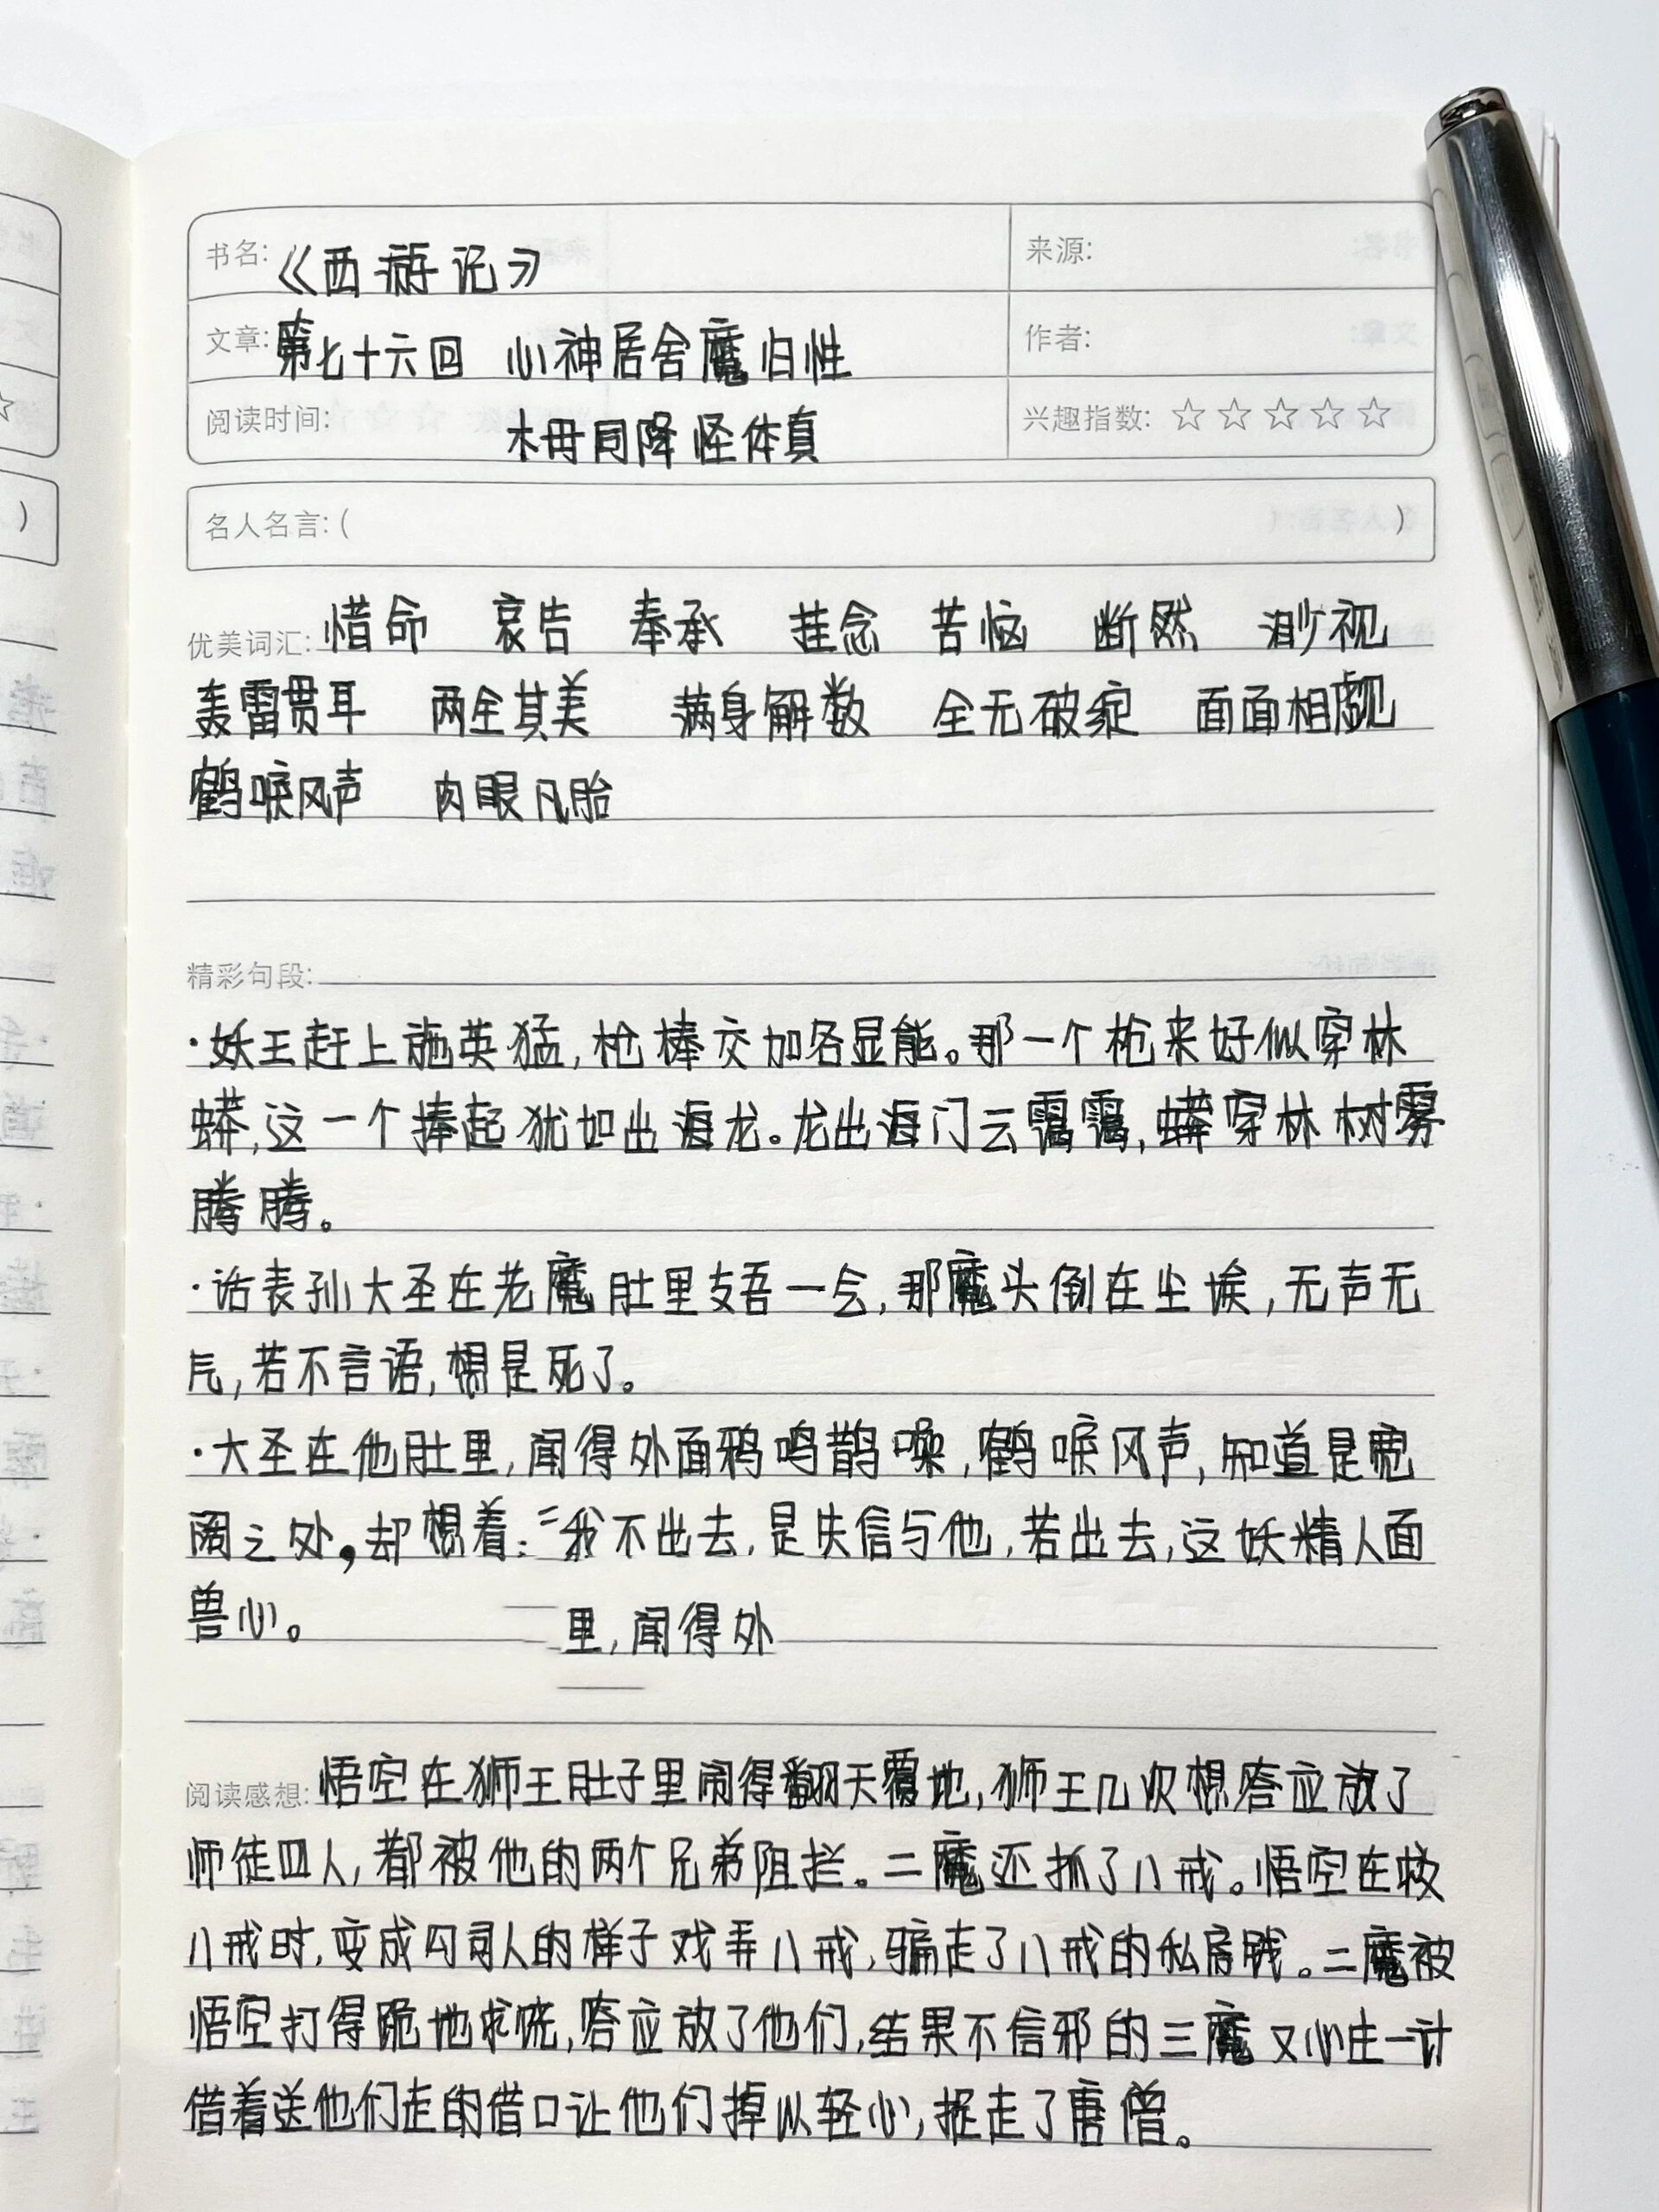 书名:《西游记》 来源:
文章:第七十六回 心神居舍魔归性 作者:
阅读时间: 木母同降怪体真 兴趣指数:☆☆☆☆☆
名人名言:( )
优美词汇: 惜命 哀告 奉承 挂念 苦恼 断然 渺视
轰雷贯耳 两全其美 满身解数 全无破绽 面面相觑
鹤唳风声 肉眼凡胎
精彩句段:
·妖王赶上施英猛,枪棒交加各显能。那一个枪来好似穿林
蟒,这一个捧起犹如出海龙。龙出海门云霭霭,蟒穿林树雾
腾腾。
·话表孙大圣在老魔肚里支吾一会,那魔头倒在尘埃,无声无
气,若不言语,想是死了。
·大圣在他肚里,闻得外面鸦鸣鹊噪,鹤唳风声,知道是宽
阔之处,却想着:“我不出去,是失信与他,若出去,这妖精人面
兽心。 里,闻得外
阅读感想: 悟空在狮王肚子里闹得翻天覆地,狮王几次想答应放了
师徒四人,都被他的两个兄弟阻拦。二魔还抓了八戒。悟空在救
八戒时,变成勾司人的样子戏弄八戒,骗走了八戒的私房钱。二魔被
悟空打得跪地求饶,答应放了他们,结果不信邪的三魔又心生一计
借着送他们走的借口让他们掉以轻心,捉走了唐僧。